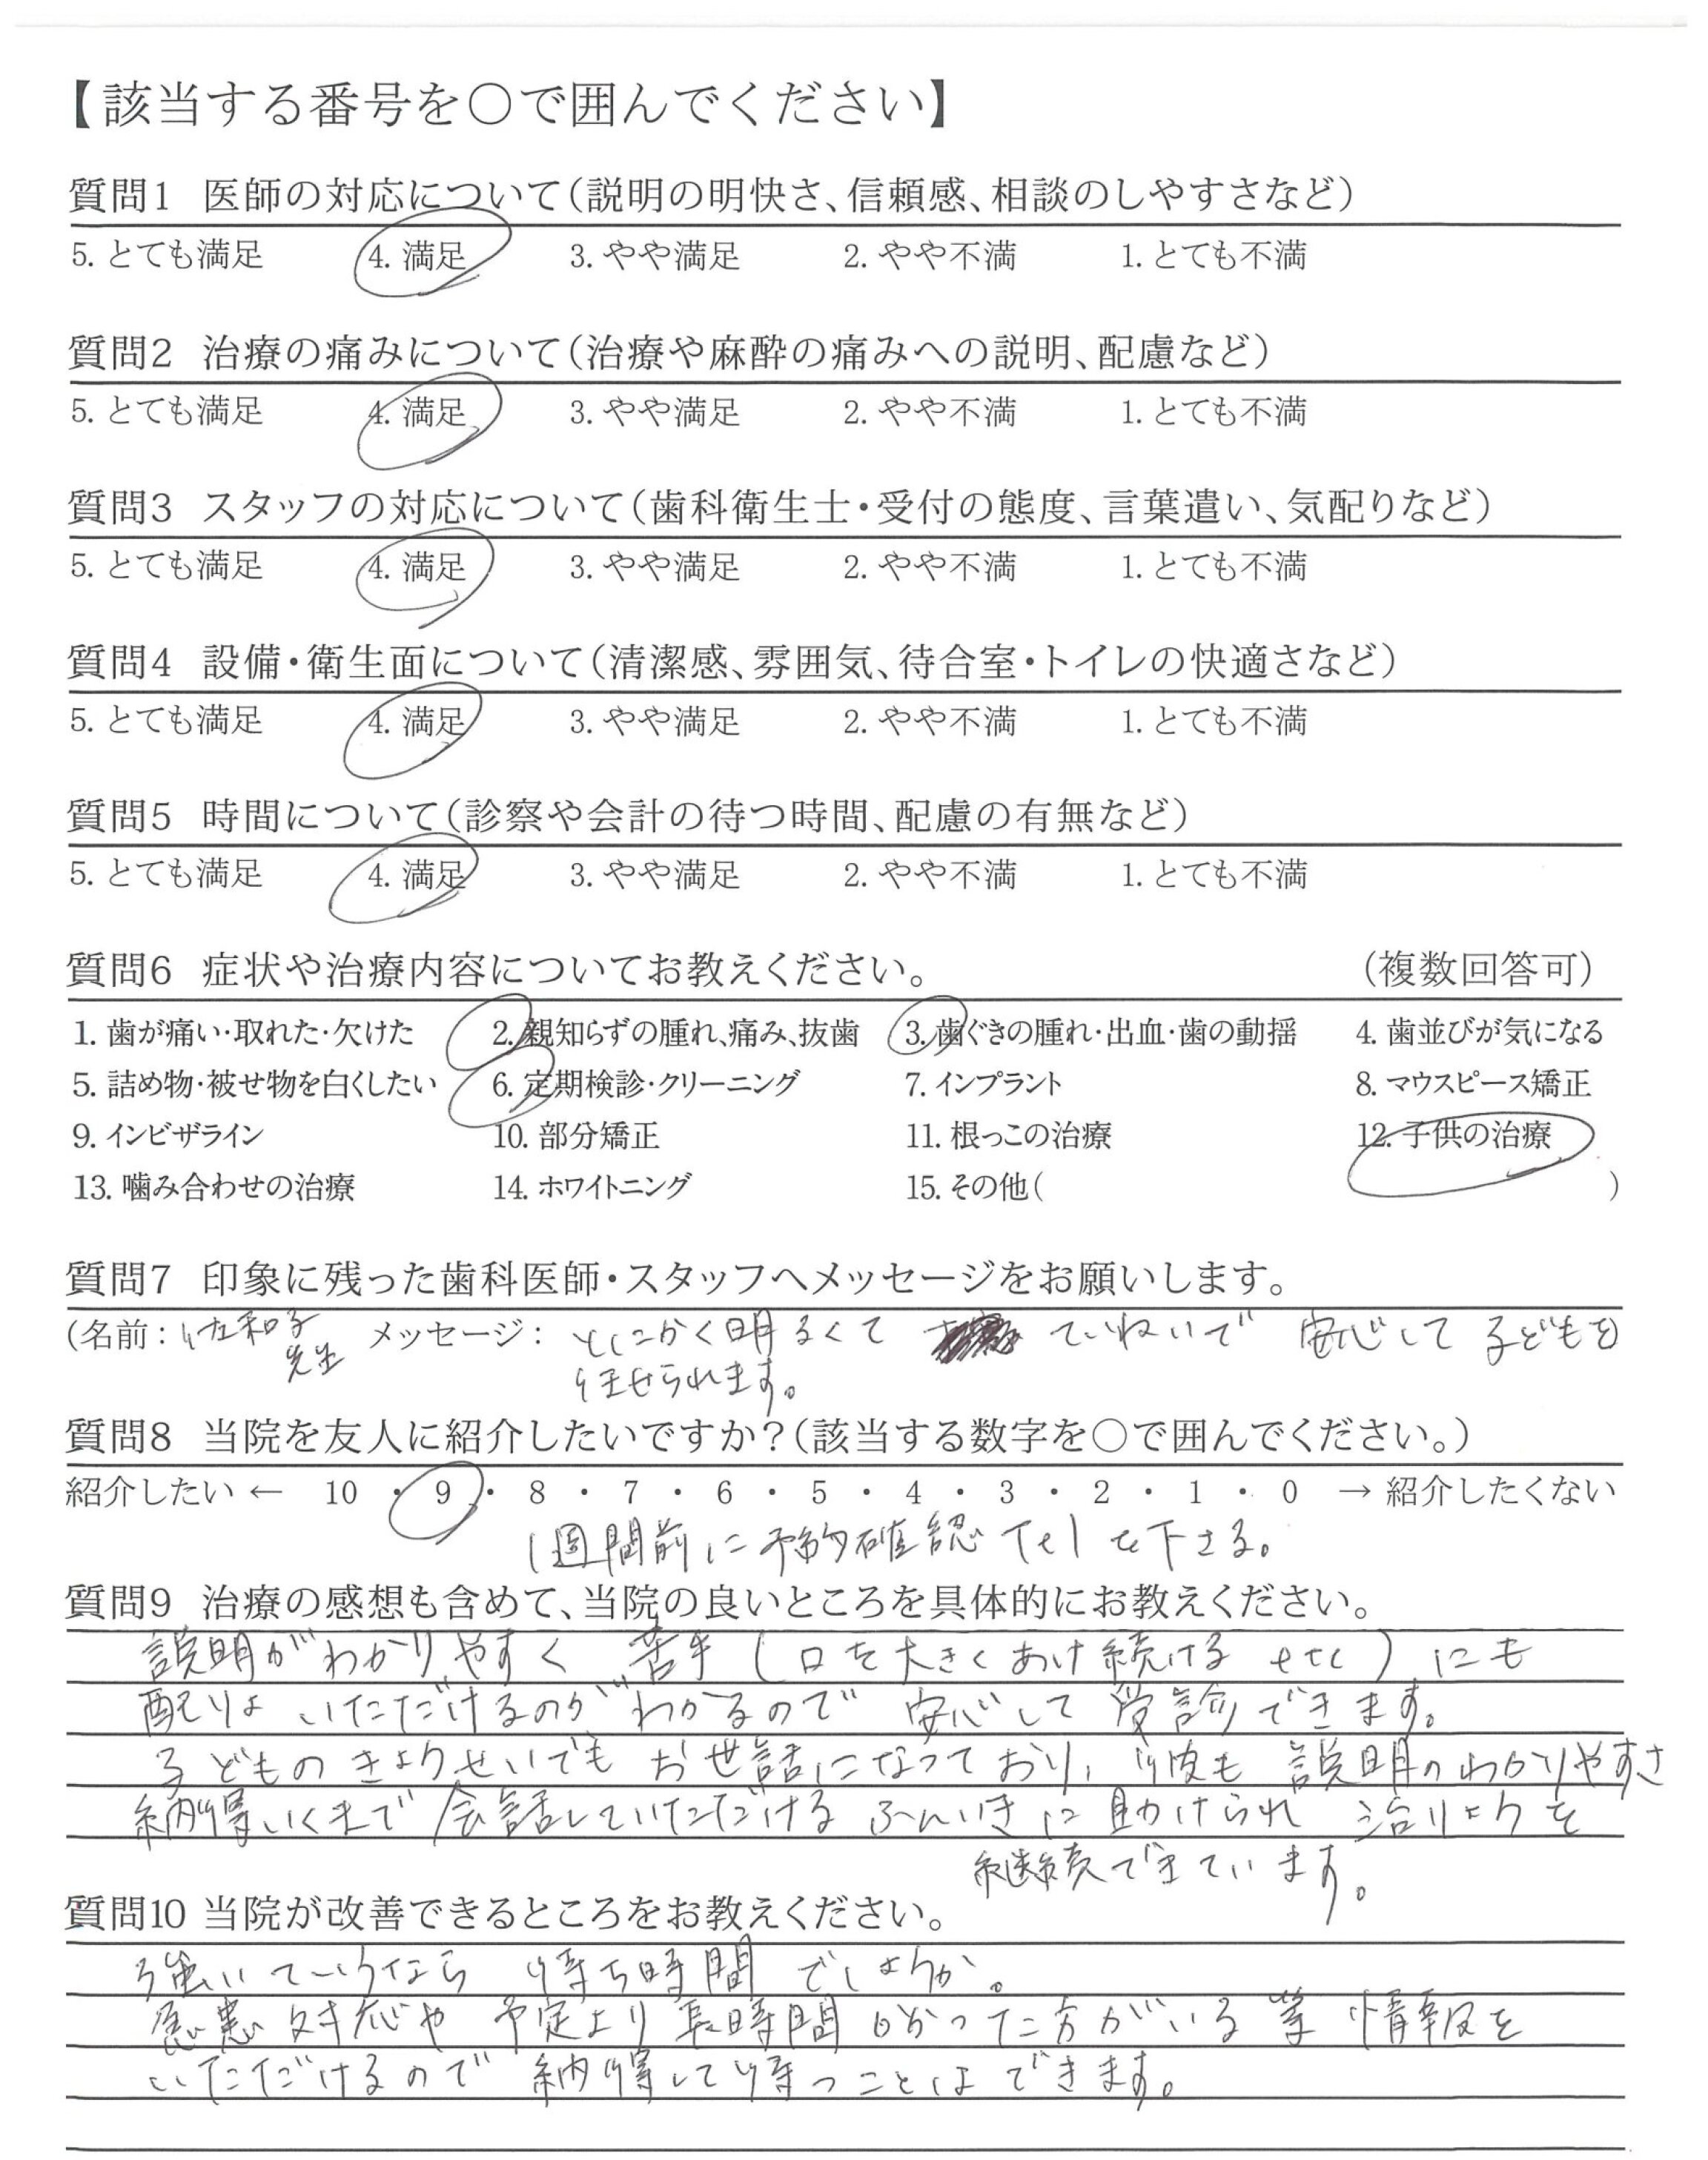 【該当する番号を○で囲んでください】
質問1 医師の対応について(説明の明快さ、信頼感、相談のしやすさなど)
5. とても満足 4. 満足 3. やや満足 2. やや不満 1. とても不満
質問2 治療の痛みについて(治療や麻酔の痛みへの説明、配慮など)
5. とても満足 4. 満足 3. やや満足 2. やや不満 1. とても不満
質問3 スタッフの対応について(歯科衛生士・受付の態度、言葉遣い、気配りなど)
5. とても満足 4. 満足 3. やや満足 2. やや不満 1. とても不満
質問4 設備・衛生面について(清潔感、雰囲気、待合室・トイレの快適さなど)
5. とても満足 4. 満足 3. やや満足 2. やや不満 1. とても不満
質問5 時間について(診察や会計の待つ時間、配慮の有無など)
5. とても満足 4. 満足 3. やや満足 2. やや不満 1. とても不満
質問6 症状や治療内容についてお教えください。 (複数回答可)
1. 歯が痛い・取れた・欠けた 2. 親知らずの腫れ、痛み、抜歯 3. 歯ぐきの腫れ・出血・歯の動揺 4. 歯並びが気になる
5. 詰め物・被せ物を白くしたい 6. 定期検診・クリーニング 7. インプラント 8. マウスピース矯正
9. インビザライン 10. 部分矯正 11. 根っこの治療 12. 子供の治療
13. 噛み合わせの治療 14. ホワイトニング 15. その他( )
質問7 印象に残った歯科医師・スタッフへメッセージをお願いします。
(名前: 佐和子 メッセージ: とにかく明るくて ていねいで 安心して 子どもを
先生 任せられます。
質問8 当院を友人に紹介したいですか?(該当する数字を○で囲んでください。)
紹介したい ← 10 ・ 9 ・ 8 ・ 7 ・ 6 ・ 5 ・ 4 ・ 3 ・ 2 ・ 1 ・ 0 → 紹介したくない
1週間前に予約確認Telを下さる。
質問9 治療の感想も含めて、当院の良いところを具体的にお教えください。
説明がわかりやすく 苦手(口を大きくあけ続ける etc)にも
配りょ いただけるのが わかるので 安心して 受診できます。
子どものきょうせいでも お世話になっており、彼も 説明のわかりやすさ
納得いくまで 会話していただける ふんいきに 助けられ 治りょうを
継続できています。
質問10 当院が改善できるところをお教えください。
強いていうなら 待ち時間 でしょうか。
急患対応や 予定より長時間かかった方がいる等 情報を
いただけるので 納得して待つことは できます。